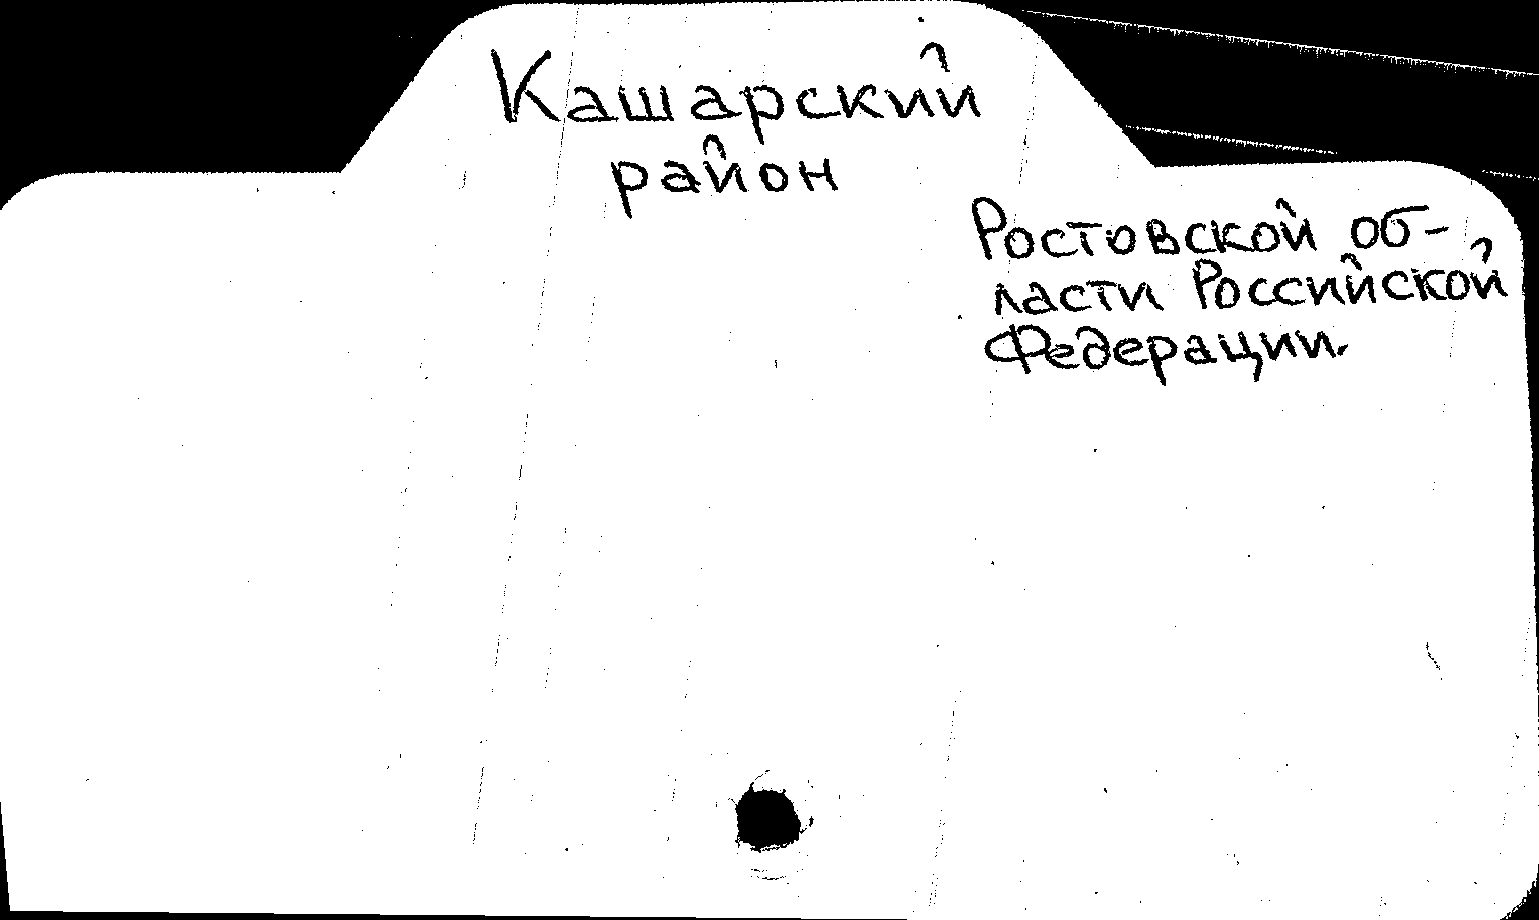 Кашарский
район
Ростовской об-
ласти Российской
Федерации.